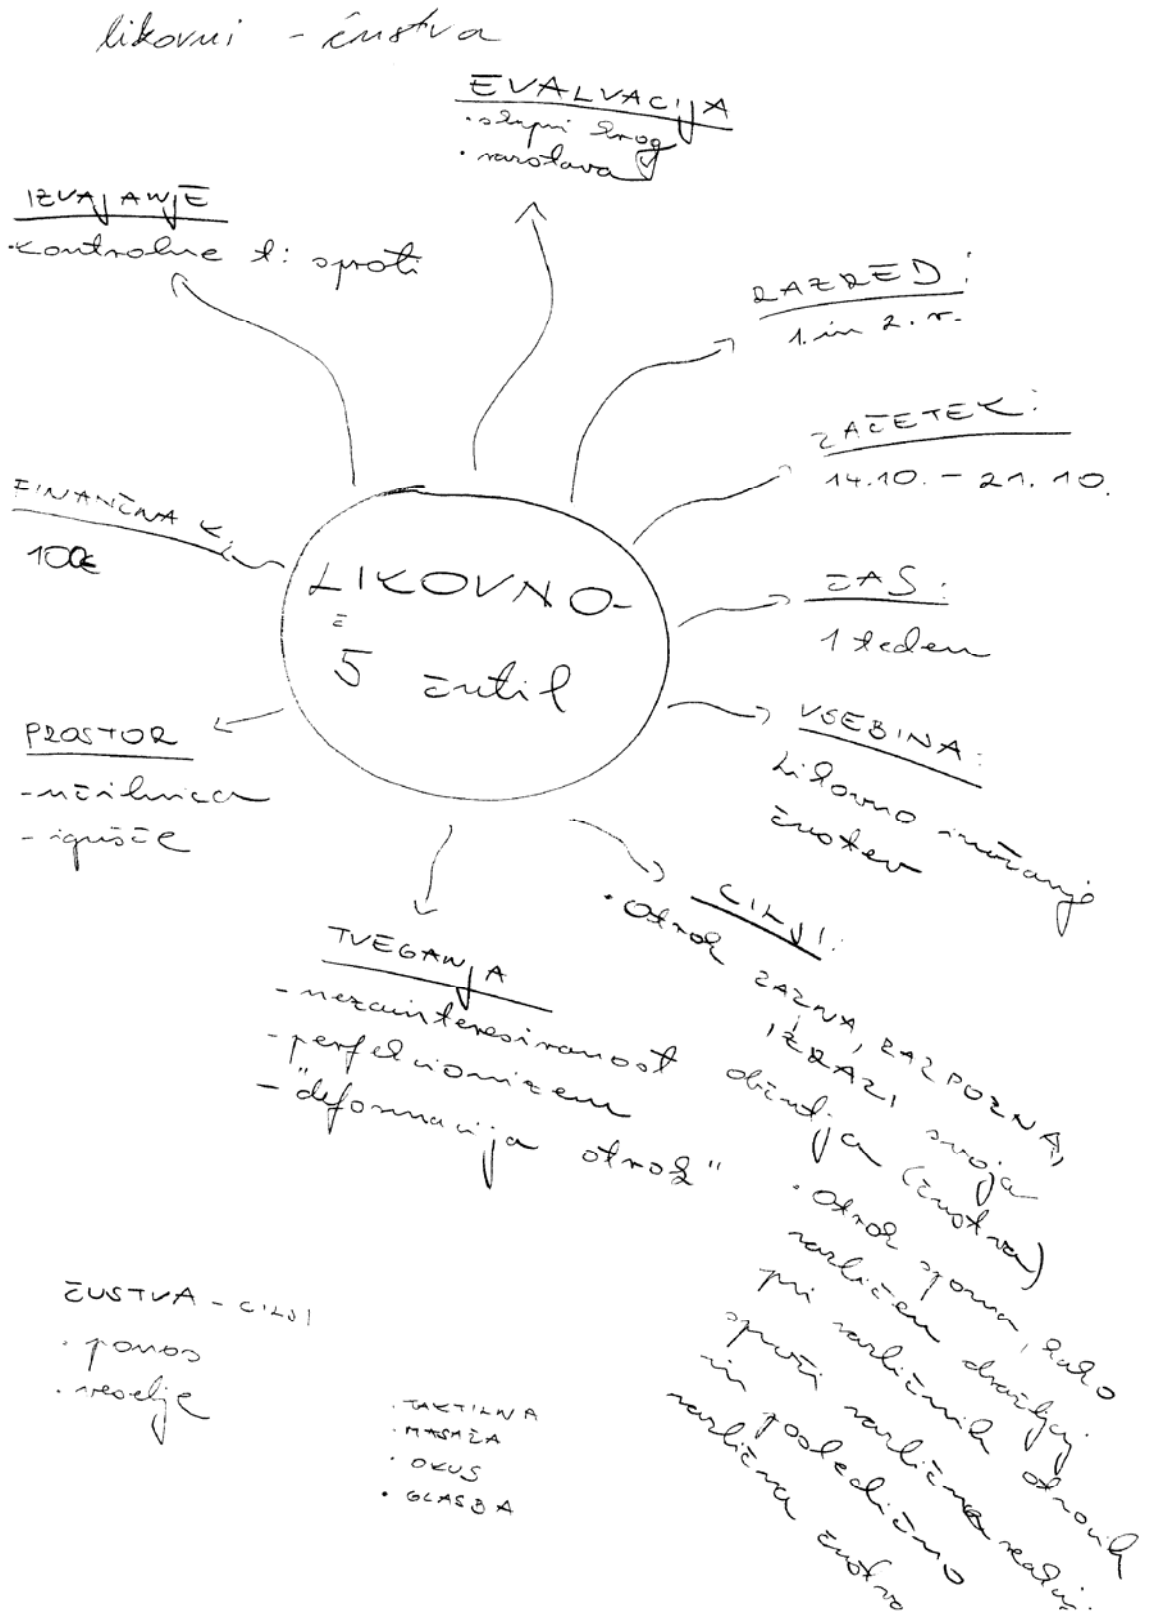 likovni - čustva
EVALVACIJA
• skupni krog
• razstava
IZVAJANJE
• kontrolne t: sproti
RAZRED:
1. in 2. r.
ZAČETEK:
14.10. - 21.10.
FINANČNA K.
100€
LIKOVNO-
5 čutil
ČAS:
1 teden
VSEBINA:
Likovno izražanje
čustev
PROSTOR
- učilnica
- igrišče
CILJI:
• Otrok ZAZNA, RAZPOZNA,
IZRAZI svoja
občutja (čustva)
• Otrok spozna, kako
različen dražljaj
pri različnih otrocih
sproži različne
in posledično
različna čustva
TVEGANJA
- nezainteresiranost
- perfekcionizem
- "deformacija otrok"
ČUSTVA - CILJI
• ponos
• veselje
• TAKTILNA
• MASAŽA
• OKUS
• GLASBA